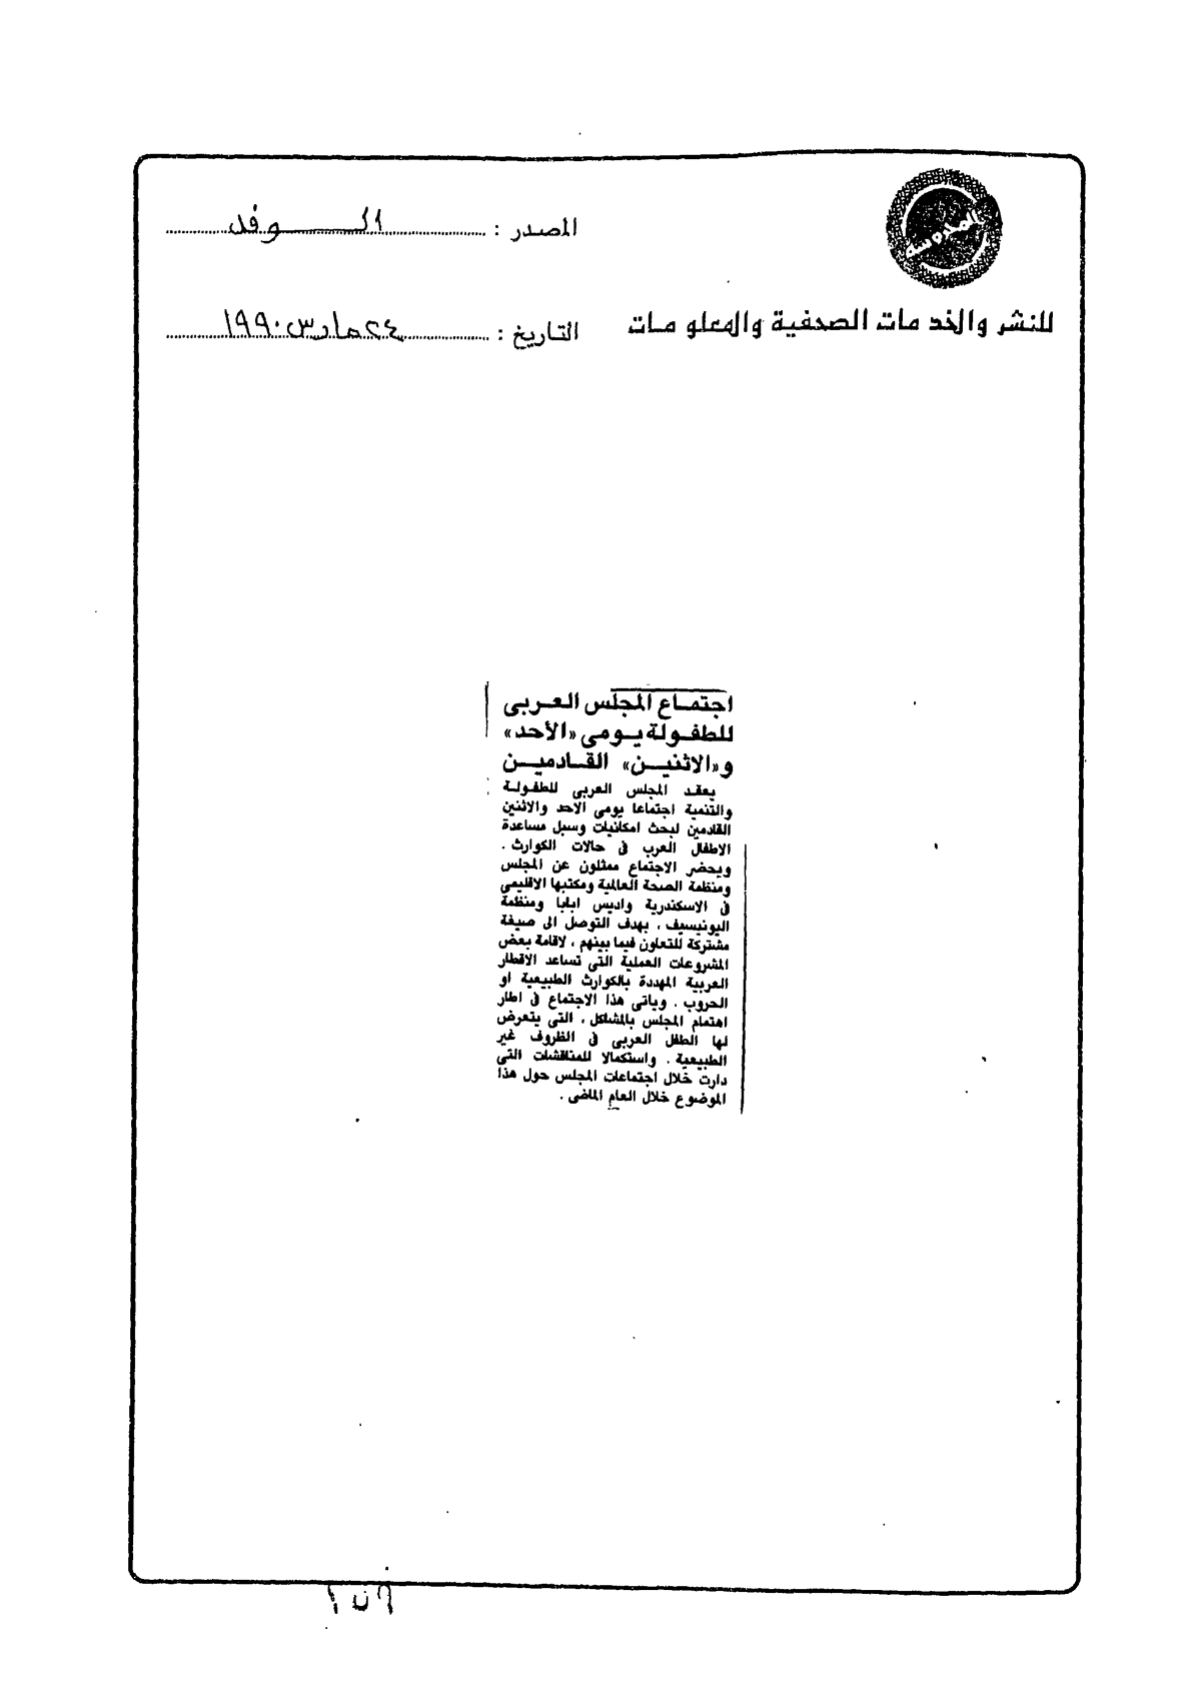 المصدر : الوفد
للنشر والخدمات الصحفية والمعلومات
التاريخ : ٢٤ مارس ١٩٩٠
اجتمـاع المجلس العـربى
للطفـولة يـومى «الأحد»
و«الاثنيـن» القـادميـن
يعقد المجلس العربى للطفولة
والتنمية اجتماعا يومى الاحد والاثنين
القادمين لبحث امكانيات وسبل مساعدة
الاطفال العرب فى حالات الكوارث .
ويحضر الاجتماع ممثلون عن المجلس
ومنظمة الصحة العالمية ومكتبها الاقليمى
فى الاسكندرية واديس ابابا ومنظمة
اليونيسيف ، بهدف التوصل الى صيغة
مشتركة للتعاون فيما بينهم ، لاقامة بعض
المشروعات العملية التى تساعد الاقطار
العربية المهددة بالكوارث الطبيعية او
الحروب . وياتى هذا الاجتماع فى اطار
اهتمام المجلس بالمشاكل ، التى يتعرض
لها الطفل العربى فى الظروف غير
الطبيعية . واستكمالا للمناقشات التى
دارت خلال اجتماعات المجلس حول هذا
الموضوع خلال العام الماضى .